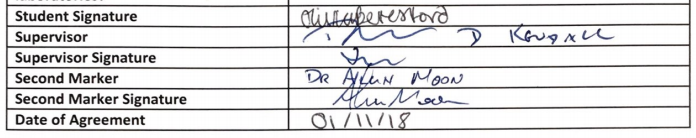 Student Signature
Supervisor D KENDALL
Supervisor Signature
Second Marker DR ALUN MOON
Second Marker Signature Alun Moon
Date of Agreement 01/11/18